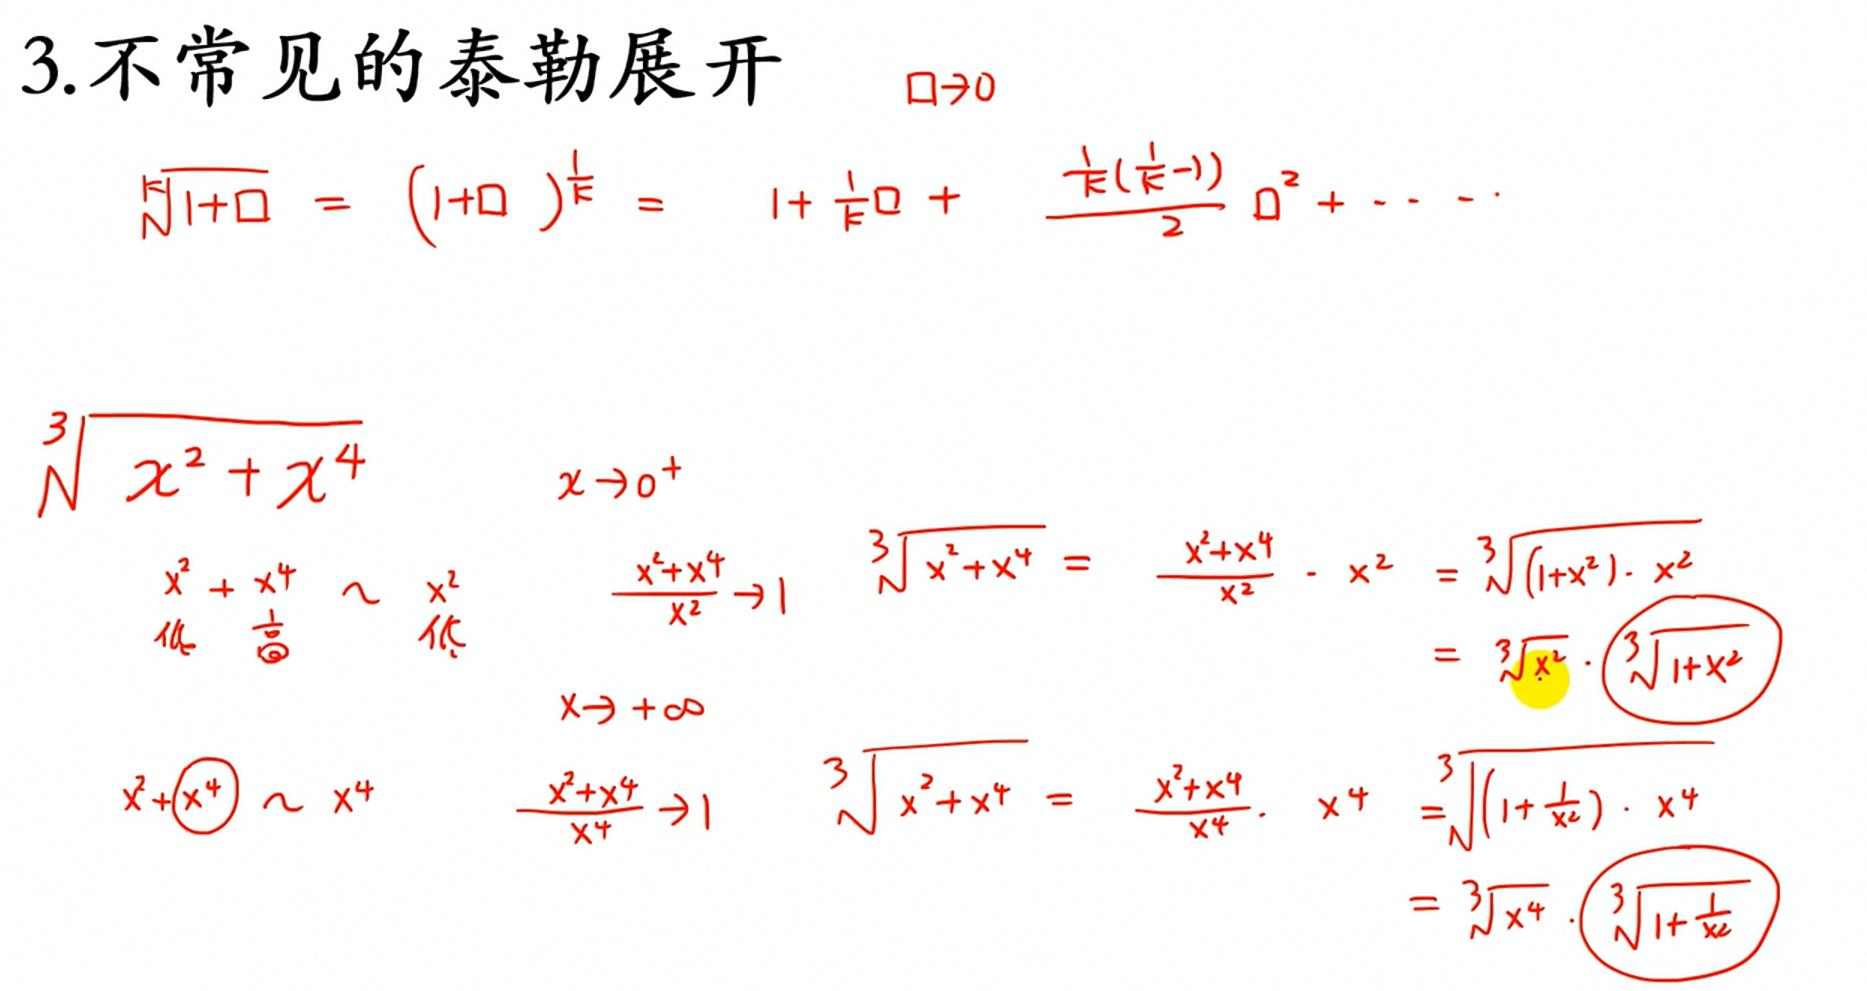 3.不常见的泰勒展开 □→0
ᵏ√(1+□) = (1+□)^(1/k) = 1 + 1/k □ + (1/k(1/k-1))/2 □² + ·· ··
³√(x²+x⁴)
x→0⁺
x² + x⁴ ~ x² (x²+x⁴)/x² →1 ³√(x²+x⁴) = (x²+x⁴)/x² · x² = ³√((1+x²)· x²)
低 高 低
= ³√x² · ³√(1+x²)
x→ +∞
x²+x⁴ ~ x⁴ (x²+x⁴)/x⁴ →1 ³√(x²+x⁴) = (x²+x⁴)/x⁴ · x⁴ = ³√((1+1/x²) · x⁴)
= ³√x⁴ · ³√(1+1/x²)